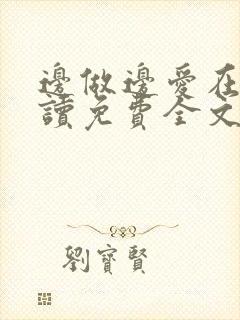 邊做邊愛在
讀免費全文
劉寶賢